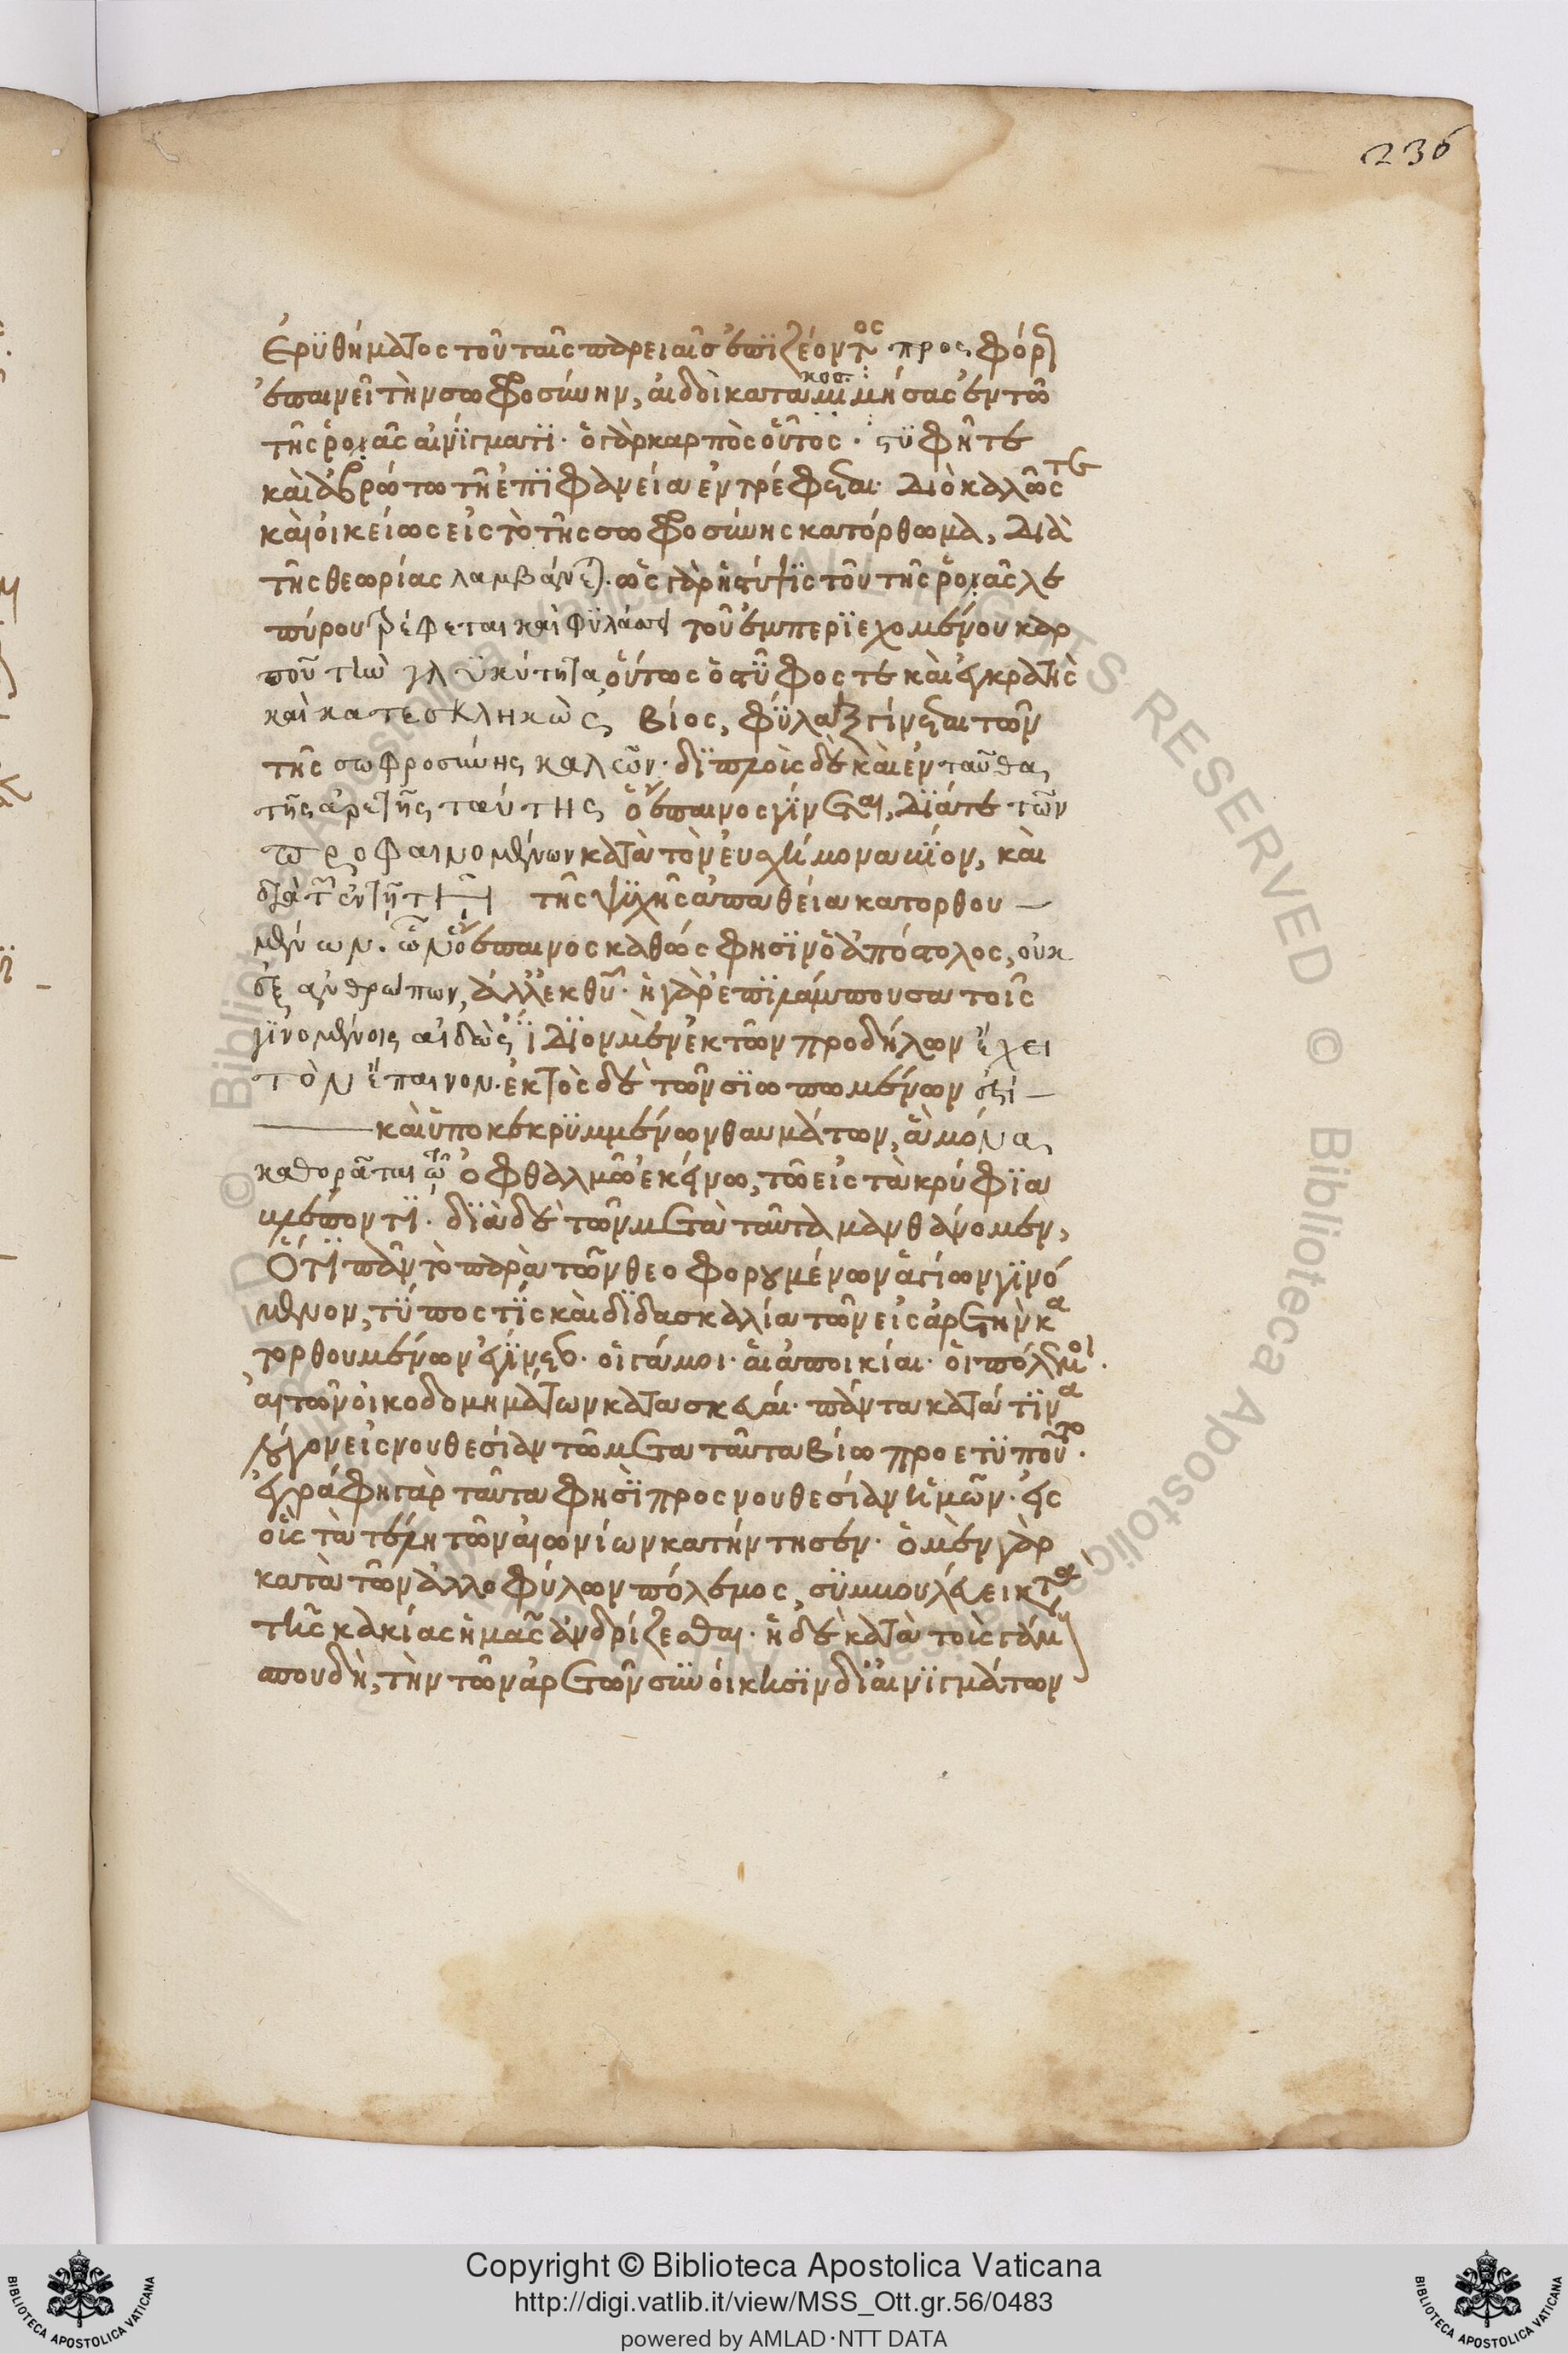 236
ἐρϋθήματος τοῦ ταῖς παρειαῖς ἐπιζέοντος προσφόρως
ἐπαινεῖ τὴν σωφροσύνην, αἰδοῖ κατακοσμήσας ἐν τῶ
τῆς ῥοιᾶς αἰνίγματι· ὁ γὰρ καρπὸς οὗτος· στϋφῆ τε
καὶ ἀβρώτω τῆ ἐπϊφανεία ἐντρέφεται· Διὸ καλῶς τε
καὶ οἰκείως εἰς τὸ τῆς σωφροσύνης κατόρθωμα, Διὰ
τῆς θεωρίας λαμβάνεται. ὡς γὰρ ἡ στύψϊς τοῦ τῆς ῥοιᾶς λε
πύρου τρέφεται καὶ φϋλάσσει τοῦ ἐμπερϊεχομένου καρ
ποῦ τὴν γλϋκύτητα, οὕτως ὁ στῦφος τε καὶ ἐγκρατὴς
καὶ κατεσκληκὼς βίος, φύλαξ γίνεται τῶν
τῆς σωφροσύνης καλῶν· δϊπλοῖς δὲ καὶ ἐνταῦθα
τῆς ἀρετῆς ταύτης ὁ ἔπαινος γίνεται, Διά τε τῶν
προφαινομένων κατὰ τὸν εὐσχήμονα βίον, καὶ
διὰ τῶν ἐν τῆ τῆ τῆς ψϋχῆς ἀπαθεία κατορθου
μένων. ὧν ὁ ἔπαινος καθώς φησϊν ὁ ἀπόστολος, οὐκ
ἐξ ἀνθρώπων, ἀλλ' ἐκ θῦ· ἡ γὰρ ἐπϊλάμπουσα τοῖς
γϊνομένοις αἰδὼς ἴδϊον μὲν ἐκ τῶν προδήλων ἔχει
τὸν ἔπαινον. ἐκτὸς δὲ τῶν σϊωπωμένων ἐστὶ
καὶ ὑποκεκρϋμμένων θαυμάτων, ἃ μόνα
καθορᾶται τῶ ὀφθαλμῶ ἐκείνω, τῶ εἰς τὰ κρύφϊα
βλέποντϊ· δϊὰ δὲ τῶν μετὰ ταῦτα μανθάνομεν,
Ὅτϊ πᾶν τὸ παρὰ τῶν θεοφορουμένων ἁγίων γϊνό
μενον, τύπος τϊς καὶ δϊδασκαλία τῶν εἰς ἀρετὴν κα
τορθουμένων ἐγίνετο· οἱ γάμοι· αἱ ἀποικίαι· οἱ πόλεμοι·
αἱ τῶν οἰκοδομημάτων κατασκευαί· πάντα κατά τϊνα
λόγον εἰς νουθεσίαν τῶ μετὰ ταῦτα βίω προετϋποῦτο·
ἐγράφη γὰρ ταῦτα φησὶ πρὸς νουθεσίαν ἡμῶν· εἰς
οὓς τὰ τέλη τῶν αἰωνίων κατήντησεν· ὁ μὲν γὰρ
κατὰ τῶν ἀλλοφύλων πόλεμος, συμβουλεύει κατὰ
τῆς κακίας ἡμᾶς ἀνδρίζεσθαι· ἡ δὲ κατὰ τοὺς γάμους
σπουδὴ, τὴν τῶν ἀρετῶν συνοίκησϊν δι' αἰνϊγμάτων
Copyright © Biblioteca Apostolica Vaticana
http://digi.vatlib.it/view/MSS_Ott.gr.56/0483
powered by AMLAD·NTT DATA